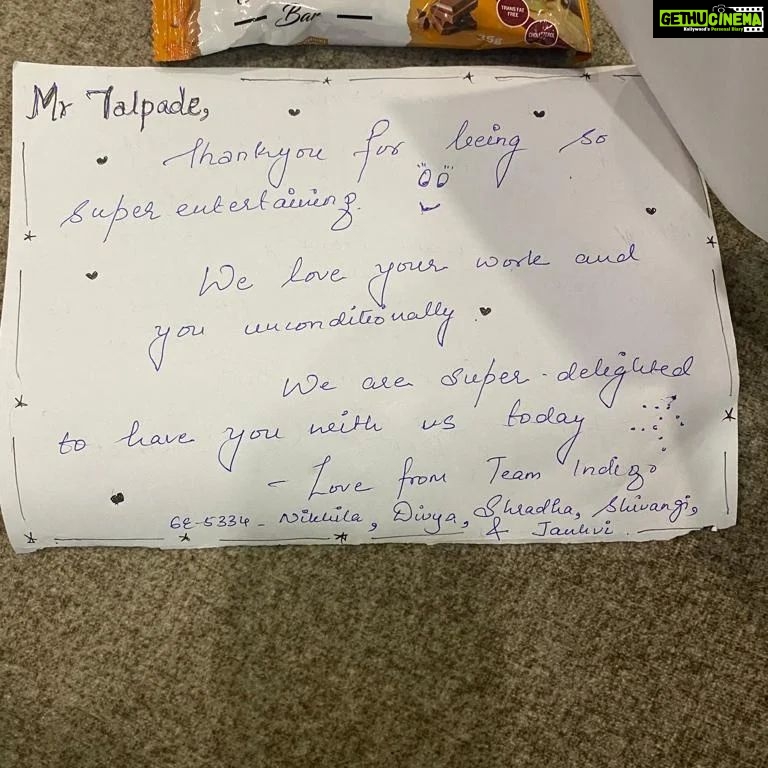 GETHUCINEMA
Kollywood's Personal Diary
Bar
TRANS FAT
FREE
CHOLESTEROL
35g
Mr Talpade,
Thankyou for being so
super entertaining.
We love your work and
you unconditionally.
We are super-delighted
to have you with us today
- Love from Team Indigo
6E-5334 - Nikhila, Divya, Shradha, Shivangi,
& Janhvi.